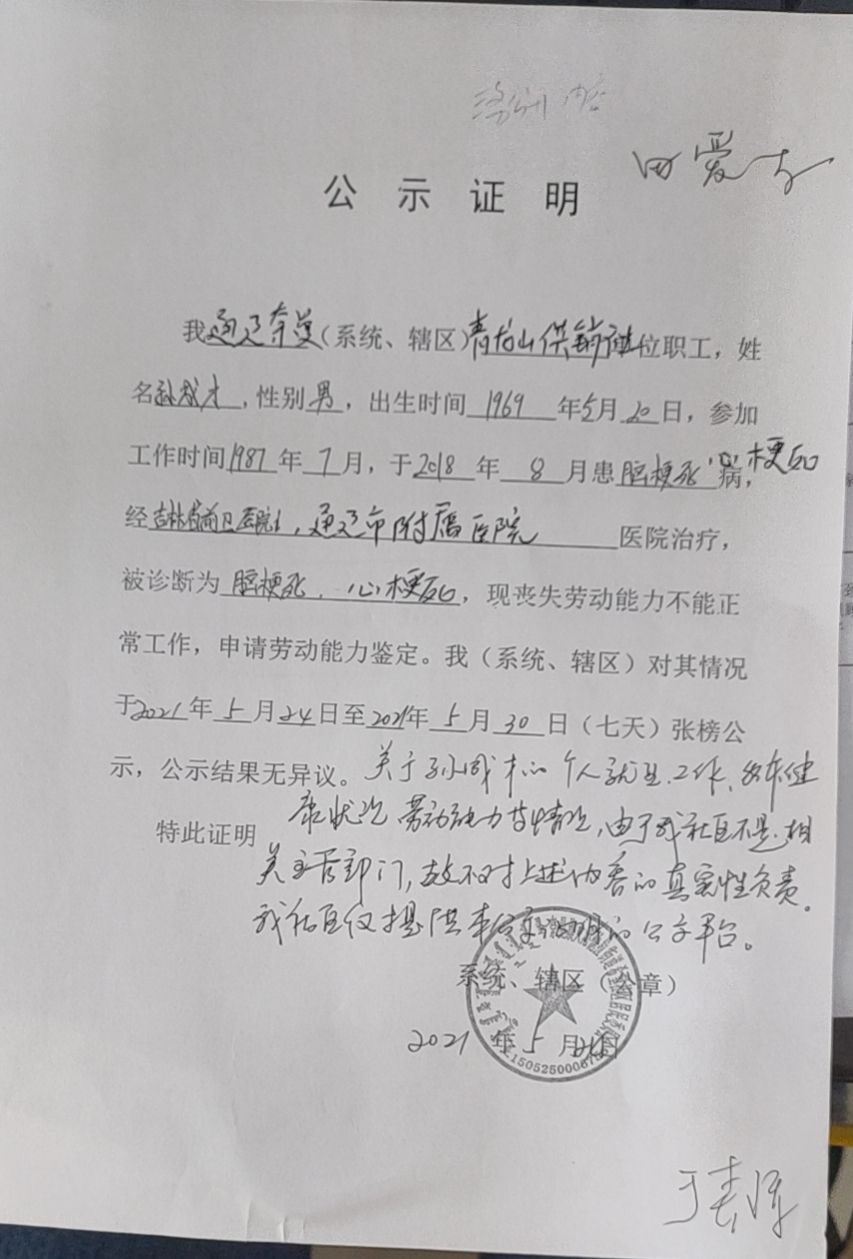 公示证明
我通辽奈曼（系统、辖区）青龙山供销社位职工，姓
名孙成才，性别男，出生时间1969年5月20日，参加
工作时间1987年7月，于2018年8月患脑梗死 心梗死病，
经吉林省前卫医院，通辽市附属医院医院治疗，
被诊断为脑梗死、心梗死，现丧失劳动能力不能正
常工作，申请劳动能力鉴定。我（系统、辖区）对其情况
于2021年5月24日至2021年5月30日（七天）张榜公
示，公示结果无异议。关于孙成才的个人就业.工作、身体健
特此证明 康状况 劳动能力等情况，由于我社区不是相
关主管部门，故不对上述内容的真实性负责。
我社区仅提供的公示平台。
系统、辖区（公章）
2021年5月
于春